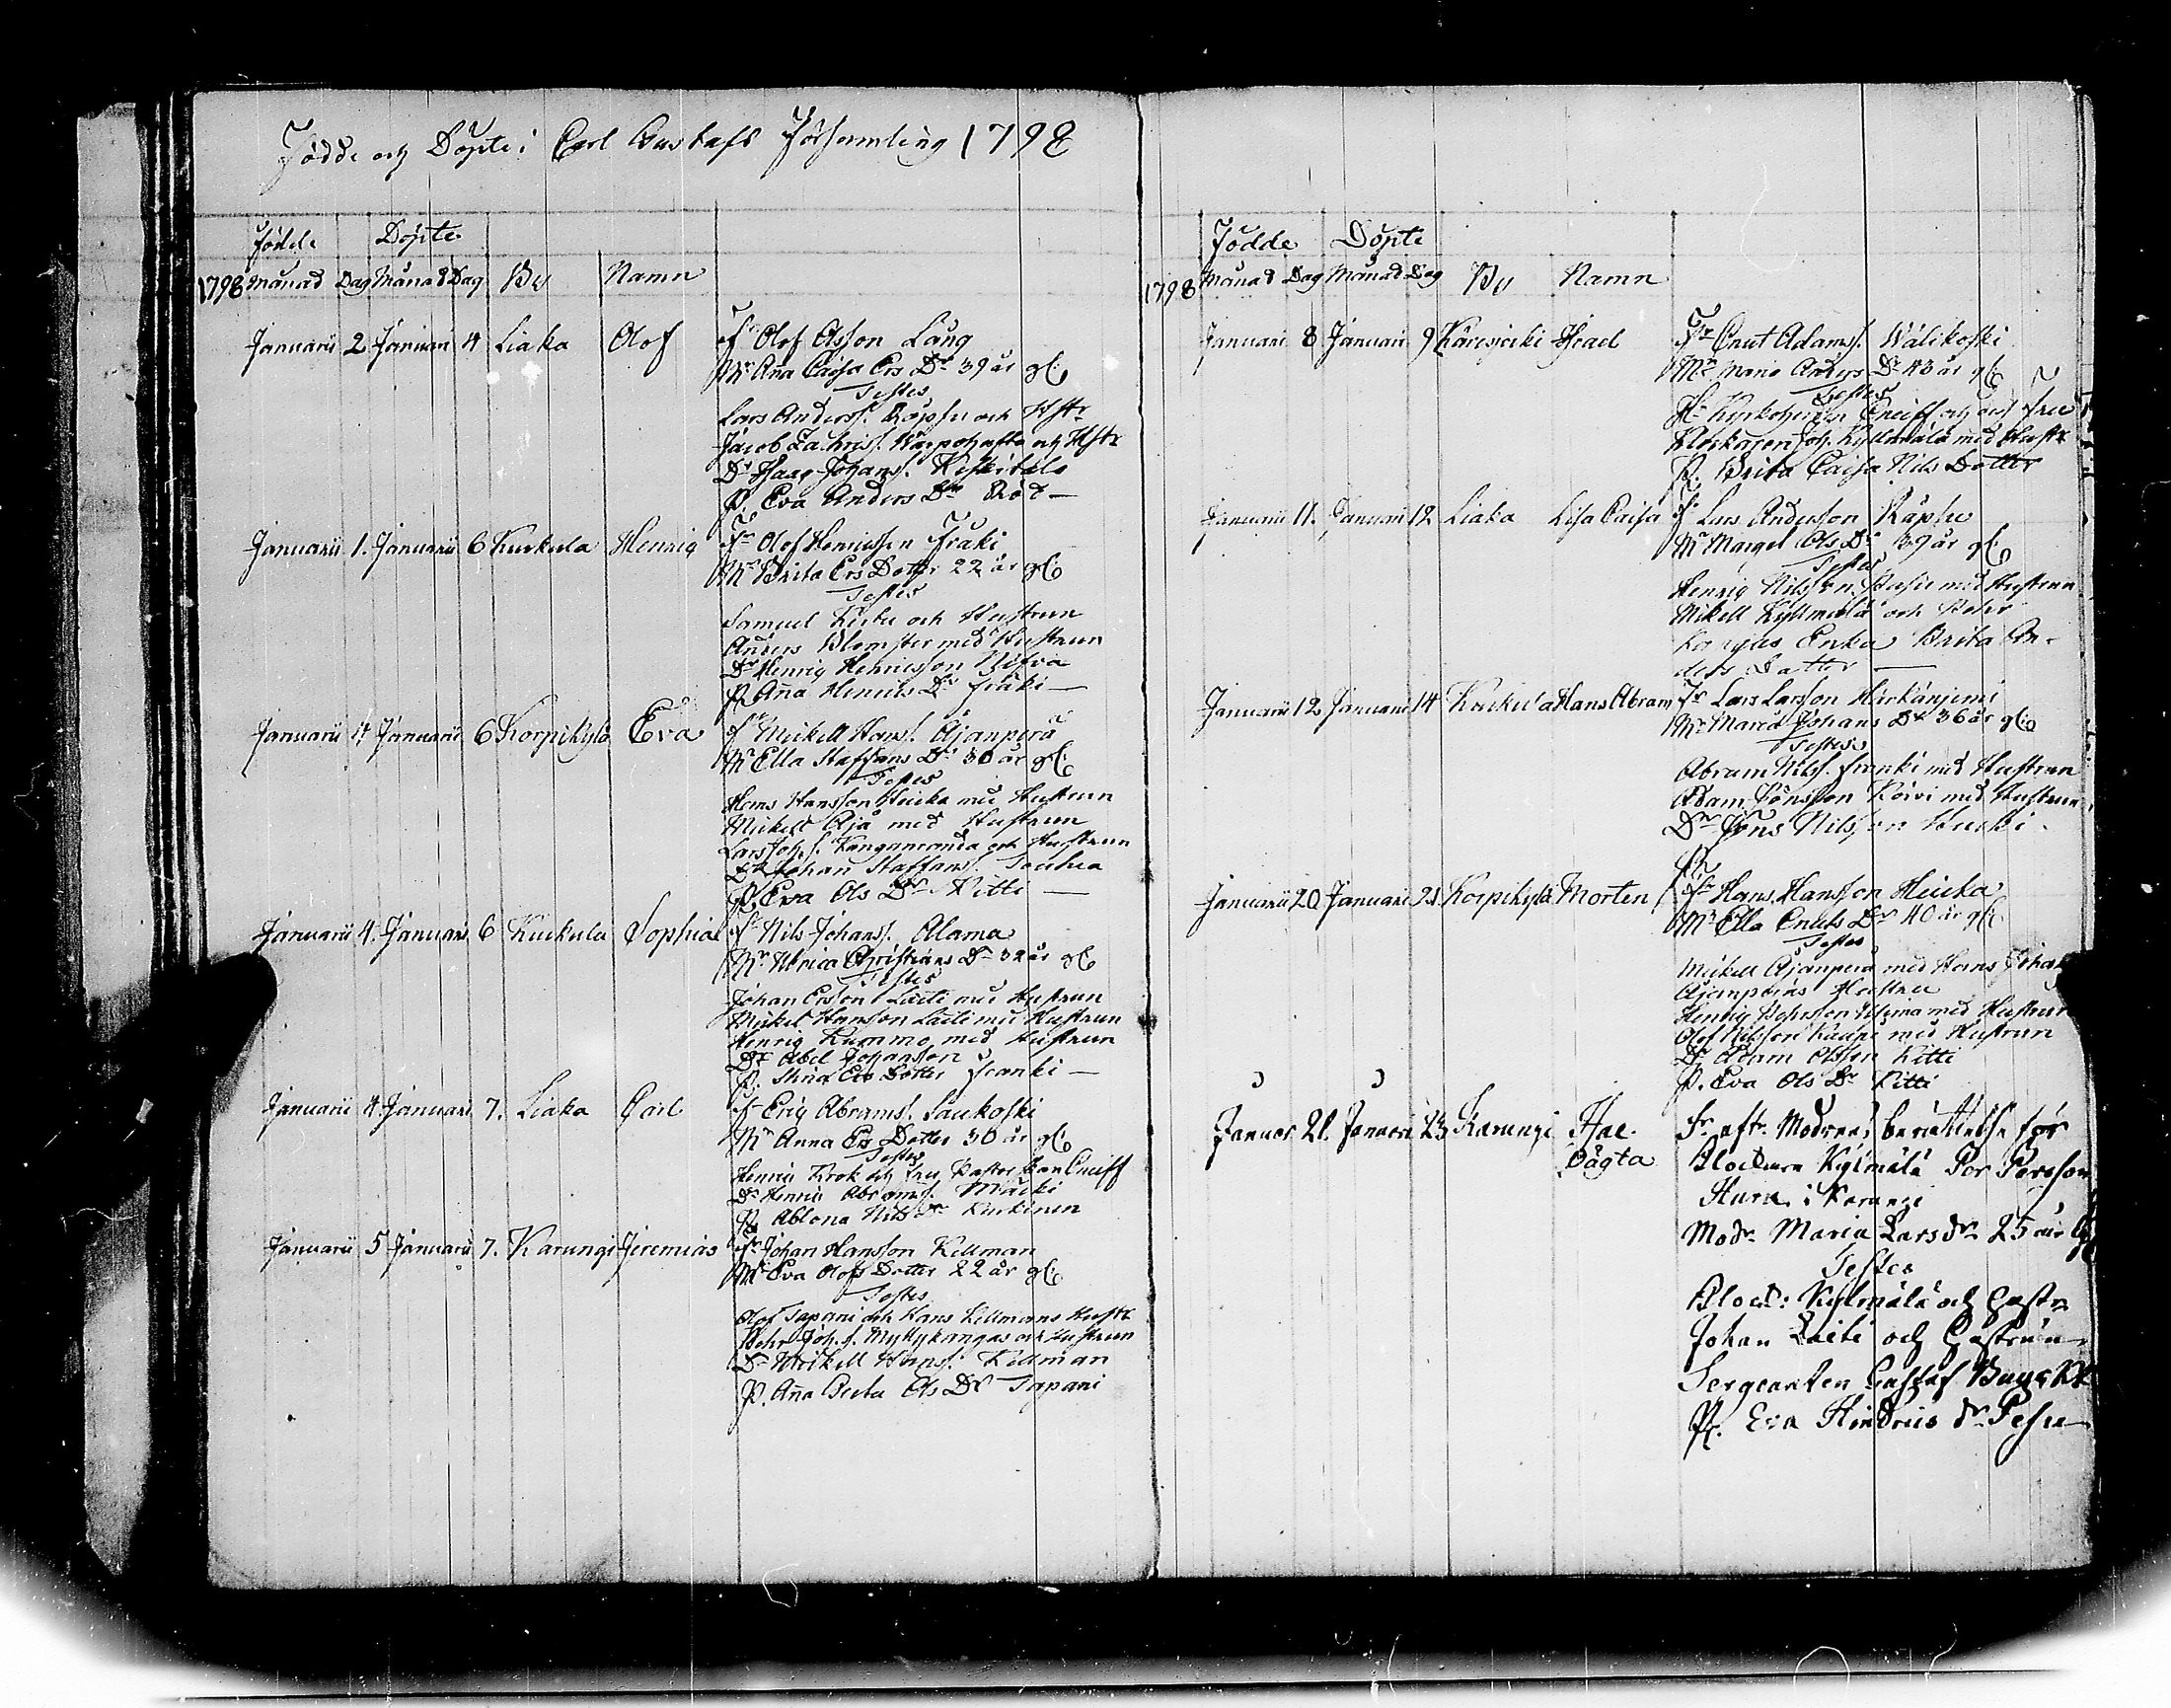 Födde och Döpte i Carl Gustafs Församling 1798
Födde Döpte
1798 Månad Dag Månad Dag By Namn
Januarii 2 Januari 4 Liaka Olof Fr Olof Olsson Lång
Mr Aña Caisa Ers Dr 39 år gl:
Testes
Lars Anderss. Räpsu och Hstr
Jacob Zachriss. och Hstr
Dr Isaac Johanss. Keskitalo
P. Eva Anders Dr Röd
Januarii 1. Januarii 6 Kuckula Henrig Fr Olof Henricsson Fraki
Mr Brita Ers Dotter 22 år gl:
Testes
Samuel och Hustrun
Anders Blomster med Hustrun
Dr Henrig Henricsson
P. Aña Henrics Dr Fraki
Januarii 4 Januarii 6 Korpikylä Eva Fr Mickell Hanss. Äjanperä
Mr Ella Staffans Dr 30 år gl:
Testes
Hans Hansson Heicka med Hustrun
Mickel Äjä med Hustrun
Lars Johs. och Hustrun
Dr Johan Staffanss.
P. Eva Ols Dr Kitti
Januarii 4. Januari 6 Kuckula Sophia Fr Nils Johanss. Alama
Mr Ulrica Christians Dr 32 år gl:
Testes
Johan Ersson Laiti med Hustrun
Mickel Hansson Laiti med Hustrun
Henrig Kummo med Hustrun
Dr Abel Johansson
P. Stina Ers Dotter Franki
Januarii 4 Januari 7. Liaka Carl Fr Erig Abramss. Laukoski
Mr Anna Ers Dotter 30 år gl:
Testes
Henric Krok och Fru Pastorskan Cneiff
Dr Henric Abramss. Mäcki
P. Ablona Nils Dr Kurkinen
Januarii 5 Januarii 7. Karungi Jeremias Fr Johan Hansson Kellman
Mr Eva Olofs Dotter 22 år gl:
Testes
Olof Tapani och Hans Kellmans Hustr
Pehr Johss. Myllykangas och Hustrun
Dr Mickell Hanss. Kellman
P. Aña Beeta Ols Dr Tapani
Födde Döpte
1798 Månad Dag Månad Dag By Namn
Januari 8 Januari 9 Israel Fr Cnut Adamss. Wälikoski
Mr Maria Anders Dr 43 år gl:
Testes
Hr Kyrkoherden Cneiff och dess Fru
Klockaren Joh. Kyllmälä med Hustr
P. Brita Caisa Nils Dotter
Januarii 11. Januari 12 Liaka Lisa Caisa Fr Lars Andersson Räpsu
Mr Marget Ols Dr 39 år gl:
Testes
Henrig Nilsson med Hustrun
Mickell Kyllmälä och Pehr
Enka Brita An-
ders Datter
Januarii 12 Januari 14 Kuckula Hans Abram Fr Lars Larsson Härkäniemi
Mr Maria Johans Dr 36 år gl:
Testes
Abram Nilss. Franki med Hustrun
Adam Jönsson Koivi med Hustrun
Dr Jöns Nilsson Hucki
Januarii 20 Januari 21 Korpikylä Morten Fr Hans Hansson Heicka
Mr Ella Cnuts Dr 40 år gl:
Testes
Mickell Äjanperä med Hans Johan
Äjanperäs Hustru
Henrig Pehrsson med Hustrun
Olof Nilsson Kaupi med Hustrun
Dr Adam Olsson Kitti
P. Eva Ols Dr Kitti
Januar 21. Januari 23 Karungi Hae-
Dagta Fr. eftr. Modrens berättelse för
Klockaren Kylmälä Per Persson
i Karungi
Modr. Maria Larsdr 25 år gl
Testes
Klock: Kylmälä och Hustr
Johan Laiti och Hustrun
Sergeanten Gustaf
P. Eva Hindrics dr Pesu